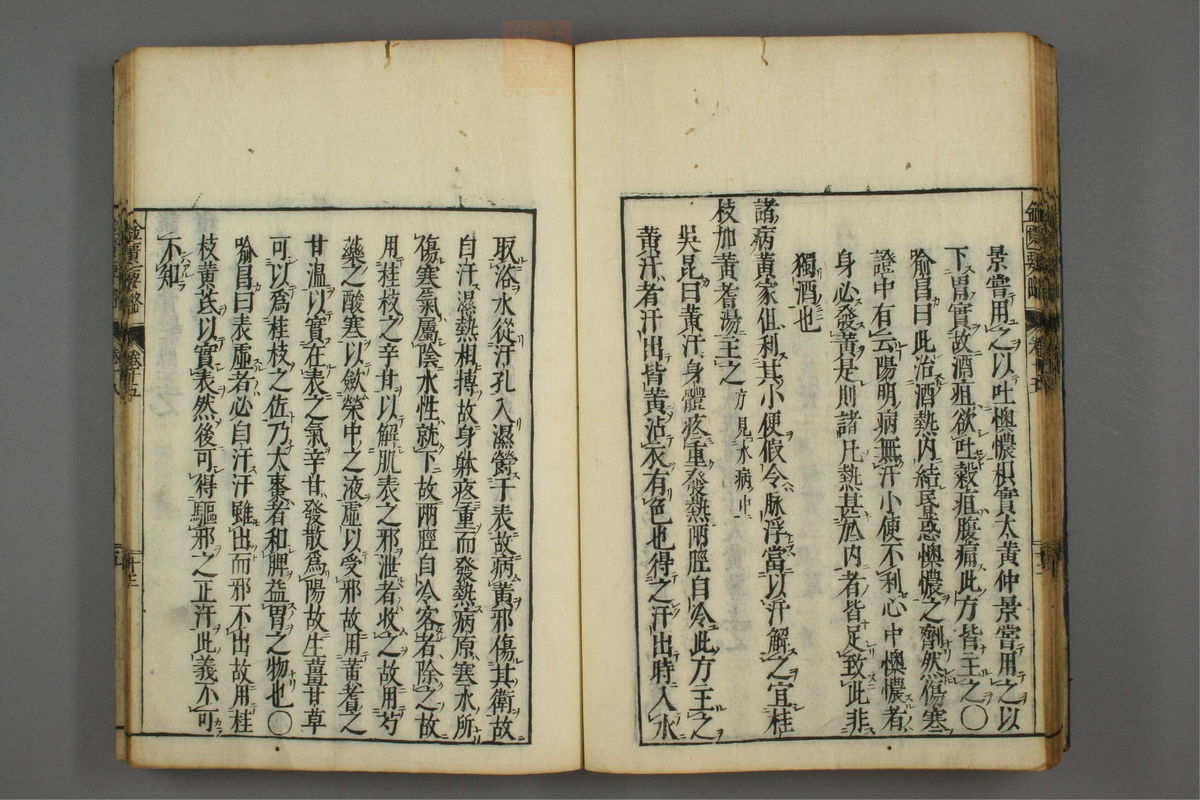 景嘗用之以吐懊憹枳實大黃仲景嘗用之以
下胃實故酒疸欲吐穀疸腹痛此方皆主之〇
喻昌曰此治酒熱内結昏惑懊憹之劑然傷寒
證中有云陽明病無汗小便不利心中懊憹者
身必發黃是則諸凡熱甚於内者皆足致此非
獨酒也
諸病黃家但利其小便假令脉浮當以汗解之宜桂
枝加黃耆湯主之方見水病中
吳昆曰黃汗身體疼重發熱兩脛自冷此方主之
黃汗者汗出皆黃沾衣有色也得之汗出時入水
取浴水從汗孔入濕鬱于表故病黃邪傷其衛故
自汗濕熱相搏故身躰疼重而發熱病原寒水所
傷寒氣屬陰水性就下故兩脛自冷客者除之故
用桂枝之辛甘以解肌表之邪泄者收之故用芍
藥之酸寒以斂榮中之液虛以受邪故用黃耆之
甘溫以實在表之氣辛甘發散爲陽故生薑甘草
可以爲桂枝之佐乃大棗者和脾益胃之物也〇
喻昌曰表虛者必自汗汗雖出而邪不出故用桂
枝黃芪以實表然後可得驅邪之正汗此義不可
不知